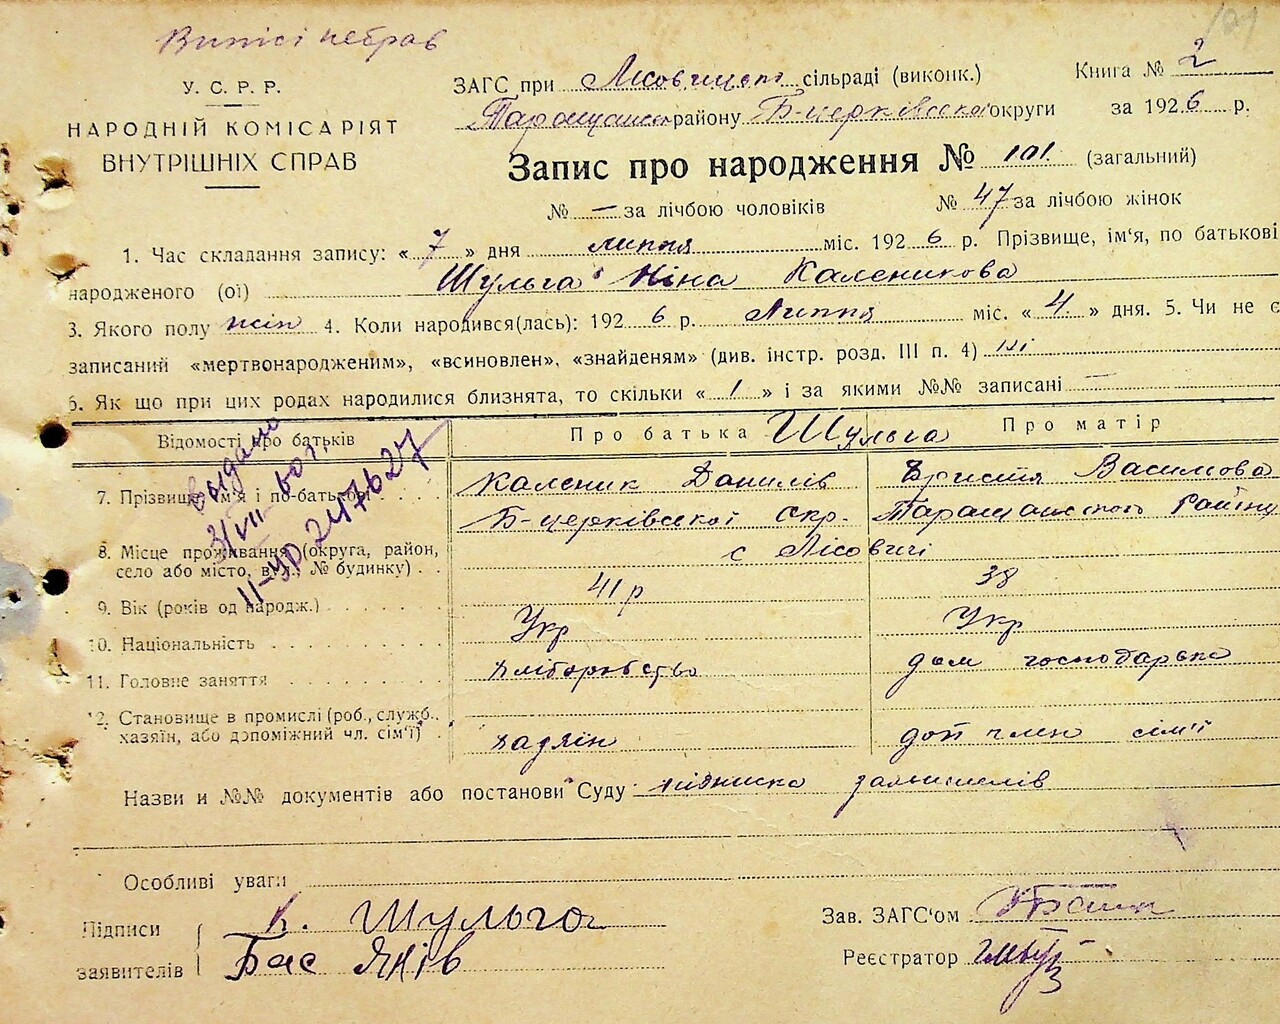 Виписі не брав
101
У. С. Р. Р.
НАРОДНІЙ КОМІСАРІЯТ
ВНУТРІШНІХ СПРАВ
ЗАГС при Лісовицькій сільраді (виконк.)
Книга № 2
Таращанськ району Б-церківської округи
за 1926 р.
Запис про народження № 101. (загальний)
№ — за лічбою чоловіків № 47 за лічбою жінок
1. Час складання запису: « 7 » дня липня міс. 1926 р. Прізвище, ім‘я, по батькові
народженого (ої) Шульга Ніна Каленикова
3. Якого полу жін 4. Коли народився(лась): 1926 р. Липня міс. « 4. » дня. 5. Чи не є
записаний «мертвонародженим», «всиновлен», «знайденям» (див. інстр. розд. III п. 4) ні
6. Як що при цих родах народилися близнята, то скільки « 1 » і за якими №№ записані —
Відомості про батьків
Про батька Шульга Про матір
7. Прізвище, ім‘я і по-батькові
Каленик Данилів
Христя Василова
Б-церківської Окр. Таращанського Району
8. Місце проживання (округа, район,
село або місто, вул., № будинку)
с Лісовичі
9. Вік (років од народж.)
41 р
38
10. Національність
Укр
Укр
11. Головне заняття
хліборобство
дом господарька
12. Становище в промислі (роб., служб.,
хазяїн, або допоміжний чл. сім‘ї)
хазяїн
доп член сім'ї
Выдано
3/VII 60 г.
II-УР 247627
Назви и №№ документів або постанови Суду: підписка заявителів
Особливі уваги
Підписи
заявителів
К. Шульга
Бас Яків
Зав. ЗАГС‘ом
Реєстратор